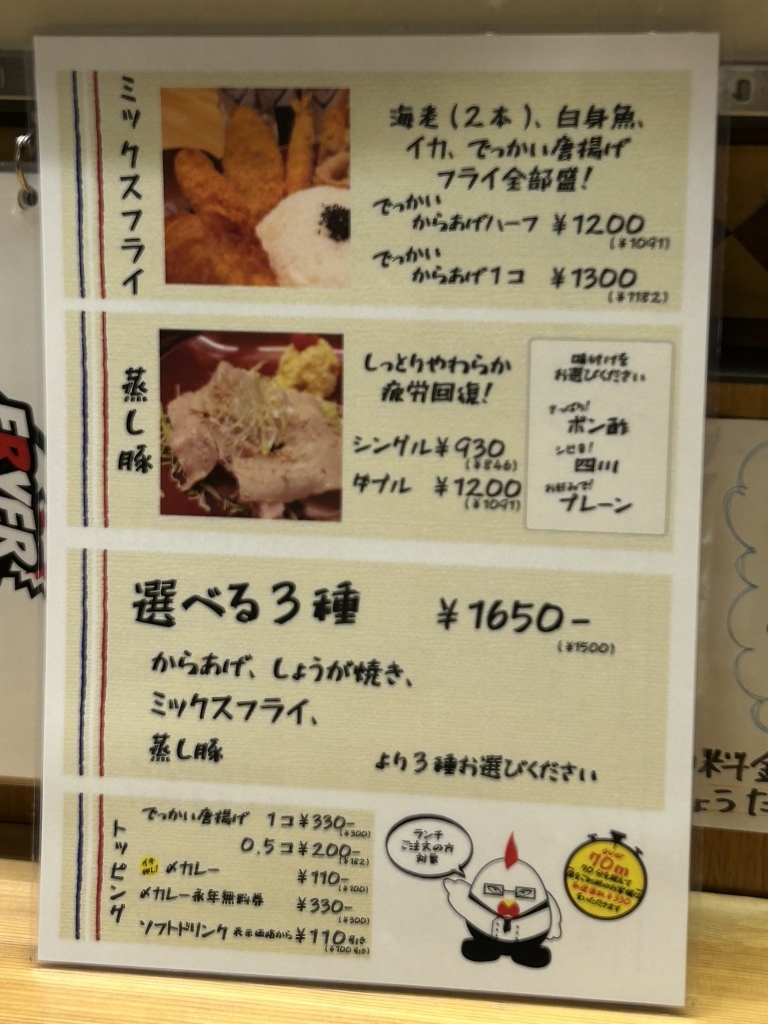 ミックスフライ
海老(2本)、白身魚、
イカ、でっかい唐揚げ
フライ全部盛!
でっかい
からあげハーフ ¥1200
(¥1091)
でっかい
からあげ1コ ¥1300
(¥1182)
蒸し豚
しっとりやわらか
疲労回復!
シングル ¥930
(¥846)
ダブル ¥1200
(¥1091)
味付けを
お選びください
さっぱり!
ポン酢
シビ辛!
四川
お好みで!
プレーン
選べる3種 ¥1650-
(¥1500)
からあげ、しょうが焼き、
ミックスフライ、
蒸し豚
より3種お選びください
トッピング
でっかい唐揚げ 1コ ¥330-
(¥300)
0.5コ ¥200-
(¥182)
イチ押し!
〆カレー ¥110-
(¥100)
〆カレー永年無料券 ¥330-
(¥300)
ソフトドリンク 表示価格から ¥110引き
(¥100引き)
ランチ
ご注文の方
対象
70m
ERVER
料金
ょうだ